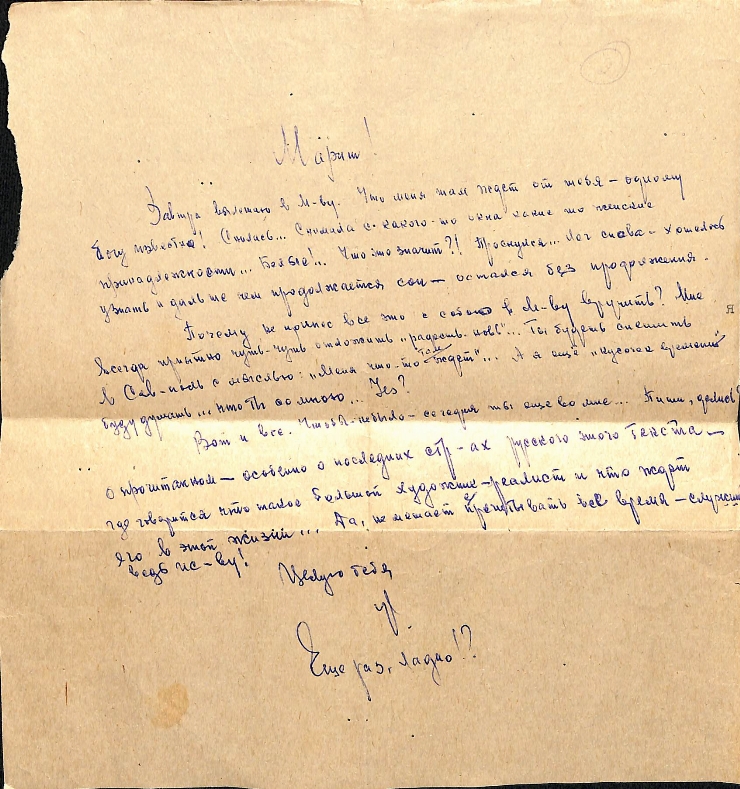 Марит!
Завтра вылетаю в М-ву. Что меня там ждет от тебя – одному
Богу известно! Снились... с какого-то окна какие то женские
принадлежности... Белые!.. Что это значит?! Проснулся... Лег снова – хотелось
узнать и дальше чем продолжается сон – остался без продолжения.
Почему не принес все это с собою в М-ву вручить? Мне
всегда приятно чуть-чуть отложить „радость-новь"... Ты будешь спешить
в Сев-поль с мыслью: „Меня что-то там ждет"... А я еще „кусочек времени"
буду думать... что Ты со мною... Yes?
Вот и все. Что бы-небыло – сегодня ты еще во мне... Пиши, делись
о прочитаном – особенно о последних стр-ах русского этого текста –
где говорится что такое большой художник-реалист и что ждет
его в этой жизни... Да, не мешает прочитывать все время –
ведь ис-ву!
Целую тебя
и
Еще раз, ладно!?
я